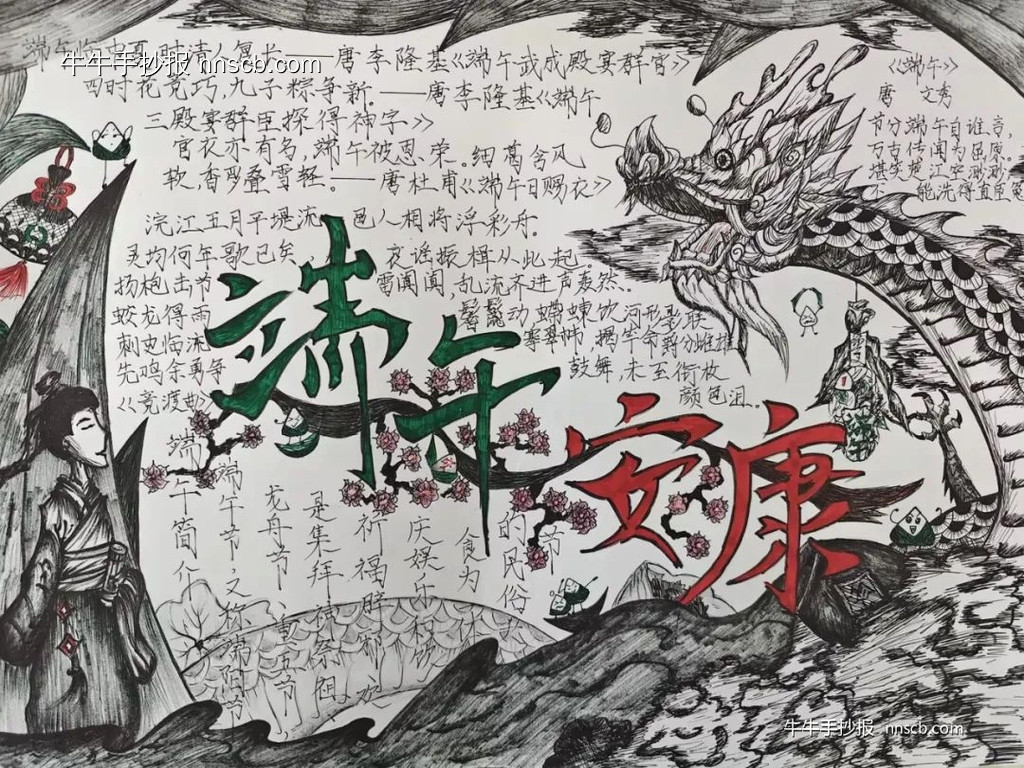 端午临中夏,时清人复长——唐李隆基《端午武成殿宴群官》
牛牛手抄报 nnscb.com
四时花竞巧,九子粽争新。——唐李隆基《端午
三殿宴群臣探得神字》
宫衣亦有名,端午被恩荣。细葛含风
软,香罗叠雪轻。——唐杜甫《端午日赐衣》
《端午》
唐 文秀
节分端午自谁言,
万古传闻为屈原,
堪笑楚江空渺渺,
不能洗得直臣冤
浣江五月平堤流,邑人相将浮彩舟。
灵均何年歌已矣,哀谣振楫从此起
扬枹击节雷闻闻,乱流齐进声轰然。
蛟龙得雨鬐鬣动,螮蝀饮河形影联
刺史临流褰翠帏,揭竿命爵分雄雌
先鸣余勇争鼓舞,未至衔枚
颜色沮。
《竞渡曲》
端午
安康
端午简介
端午节,又称端阳节
龙舟节、重五节
是集拜神祭祖
祈福辟邪欢
庆娱乐和饮
食为一体
的民俗
节
牛牛手抄报 nnscb.com